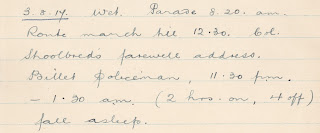 3.3.17. Wet. Parade 8.20. am.
Route march till 12.30. 6d.
Shoolbred's farewell address.
Billet Policeman, 11.30 p.m.
- 1.30 a.m. (2 hrs. on, 4 off)
fall asleep.